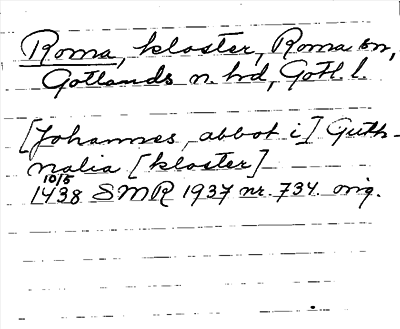 Roma, kloster, Roma sn,
Gotlands n. hd, Gotl. l.
[Johannes, abbot i] Guth-
nalia [kloster]
10/5
1438 SMR 1937 nr. 734. orig.